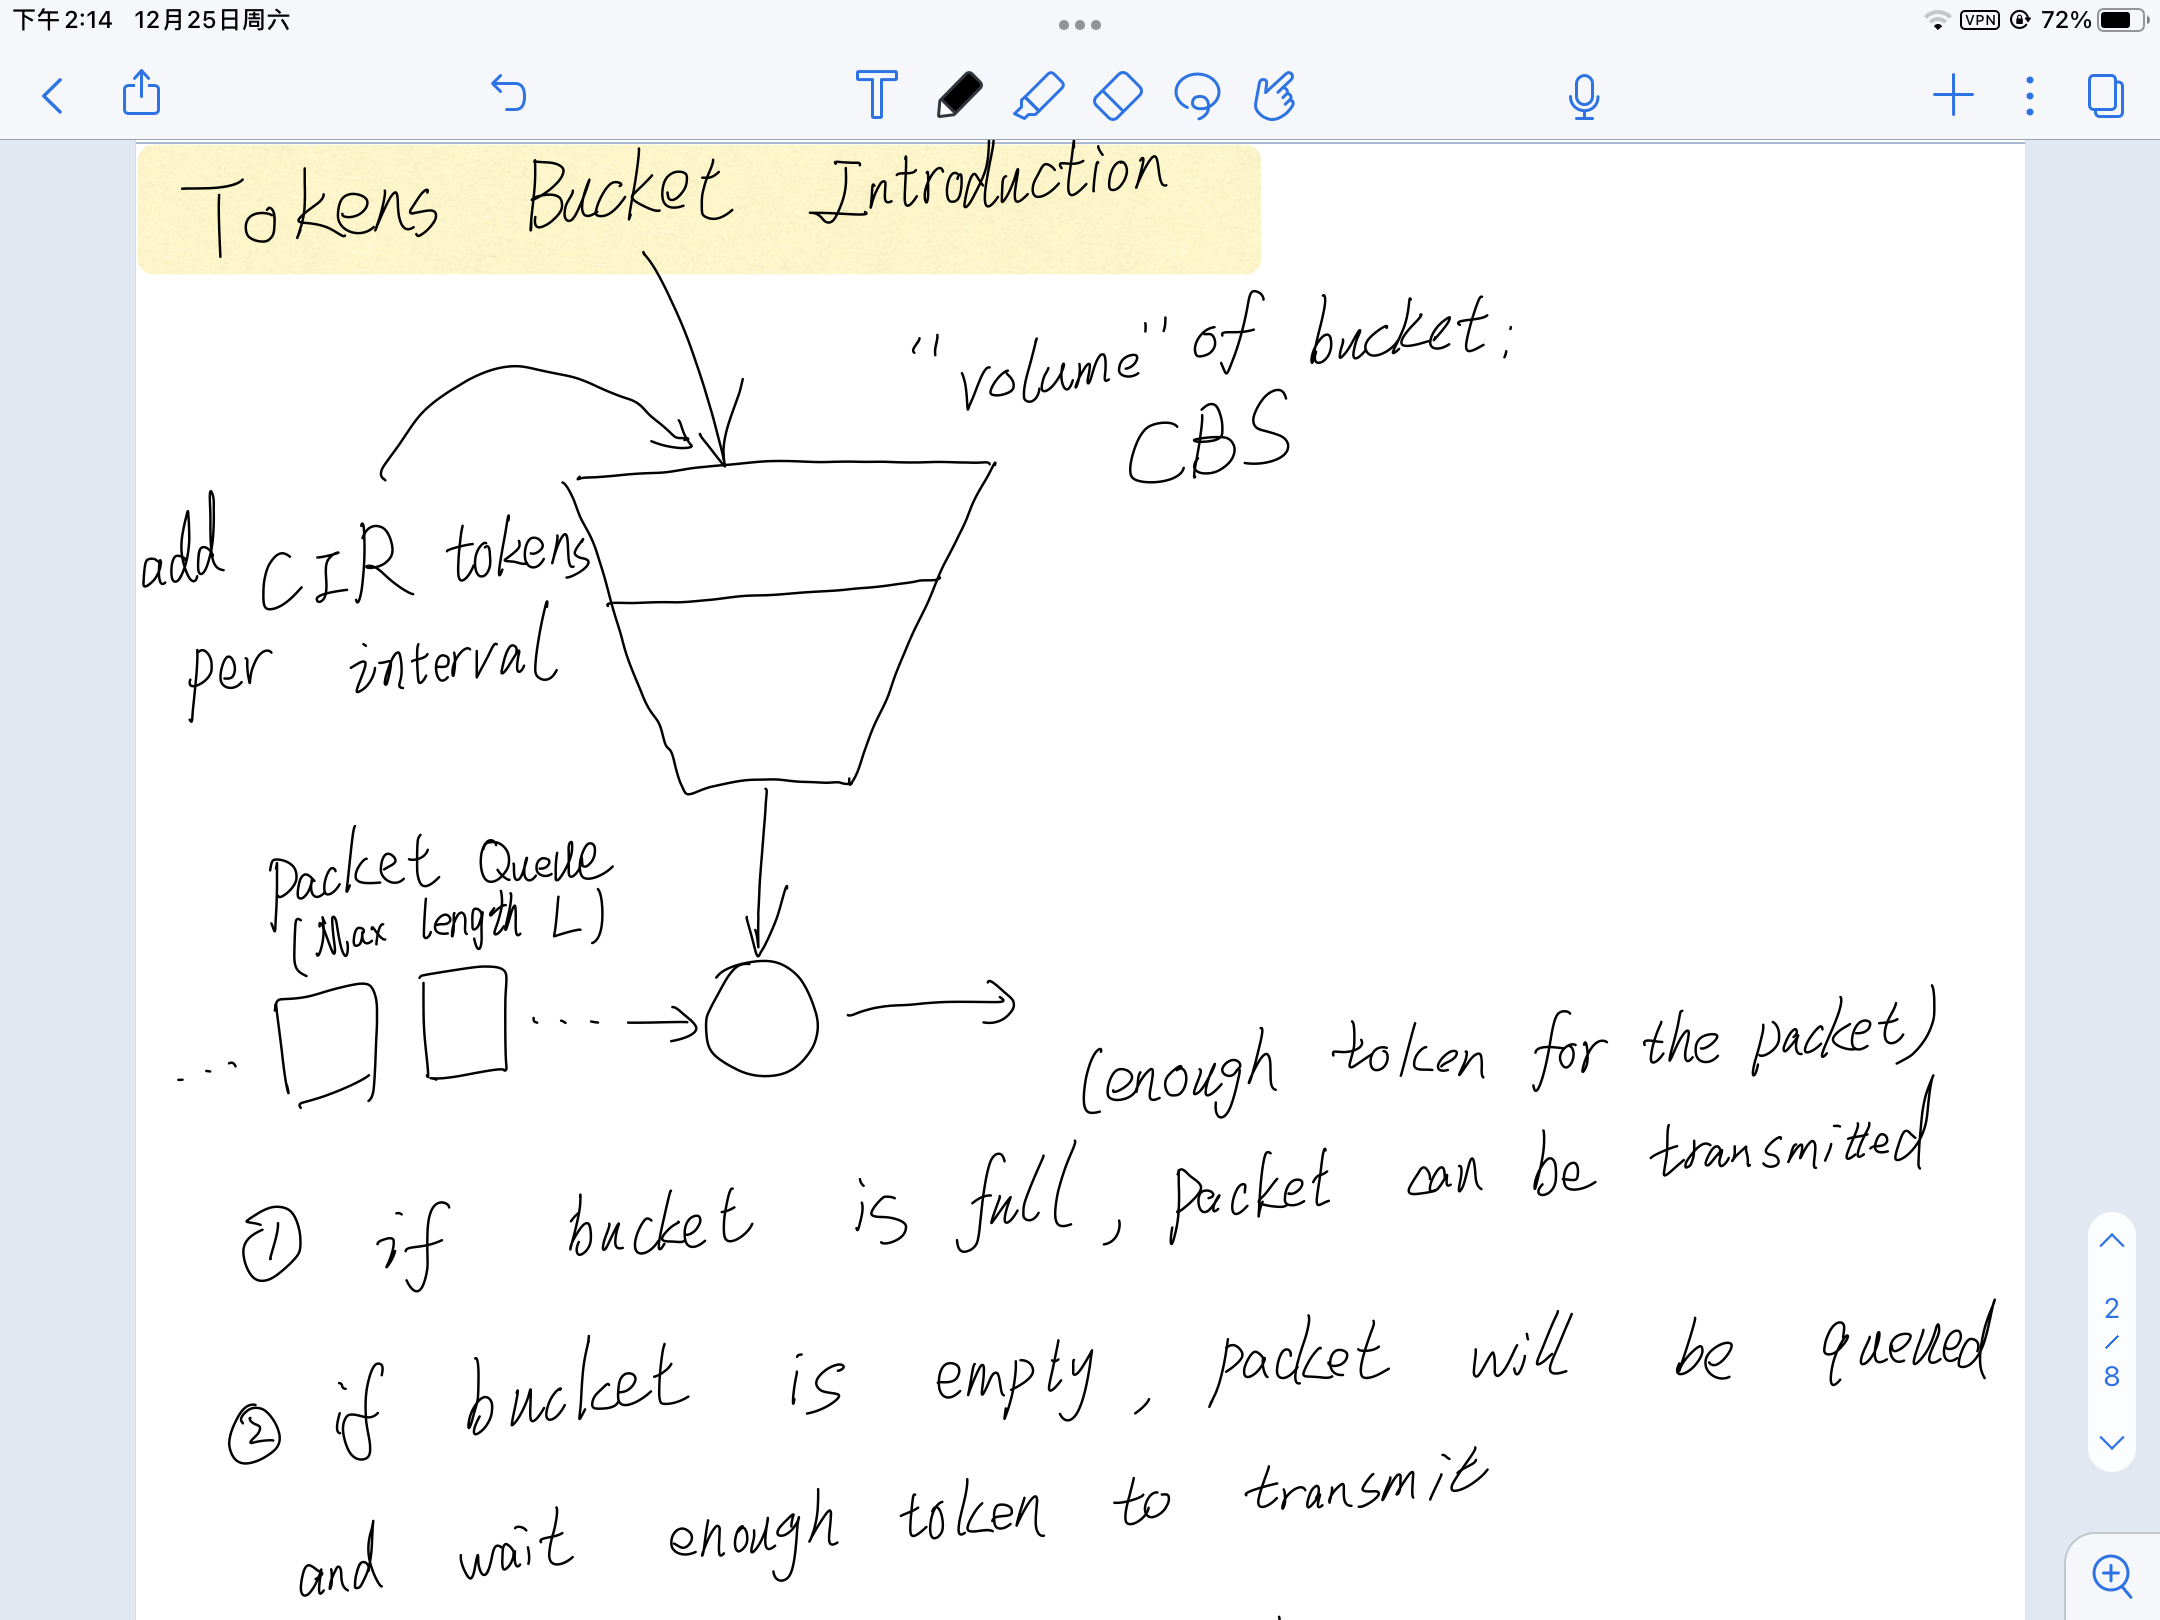 下午2:14 12月25日周六
VPN 72%
Tokens Bucket Introduction
"volume" of bucket:
CBS
add CIR tokens
per interval
Packet Queue
(Max length L)
...
...
(enough token for the packet)
① if bucket is full, packet can be transmitted
② if bucket is empty, packet will be queued
and wait enough token to transmit
2
/
8